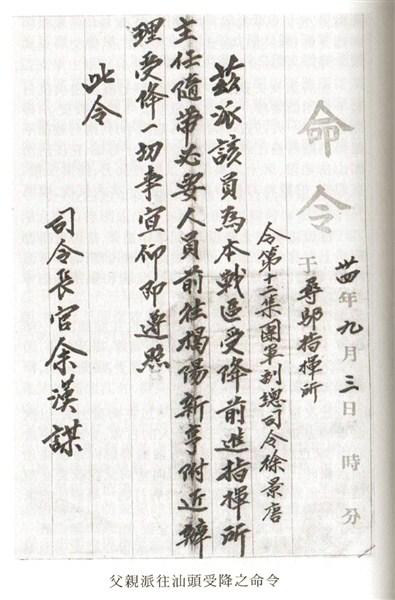 命令
卅四年九月三日 時 分
于尋鄔指揮所
令第十二集團軍副總司令徐景唐
茲派該員為本戰區受降前進指揮所
主任隨帶必要人員前往揭陽新亨附近辦
理受降一切事宜仰即遵照
此令
司令長官余漢謀
父親派往汕頭受降之命令